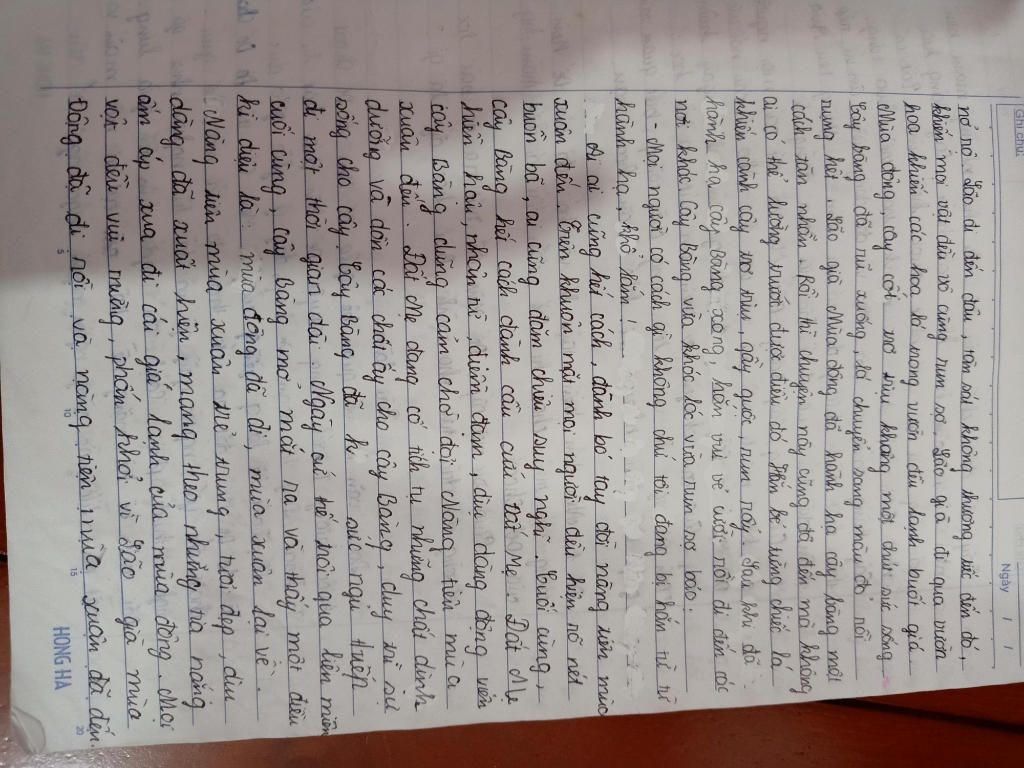 Ghi chú
Ngày / /
nó nó Lão đi đến đâu, tàn sát không thương tiếc đến đó,
khiến mọi vật đều vô cùng run sợ. Lão già đi qua vườn
hoa khiến các hoa lá trong vườn đều lạnh buốt giá.
Mùa đông, cây cối xơ xịu không một chút sức sống.
Cây bàng đã rủ xuống, lá chuyển sang màu đỏ rồi
rụng hết. Lão già Mùa đông đã hành hạ cây bàng một
cách tàn nhẫn. Rồi thì chuyện này cũng đã đến mà không
ai có thể lường trước được điều đó. Hắn bẻ từng chiếc lá
khiến cành cây xơ xác, gầy guộc, run rẩy. Sau khi đã
hành hạ cây bàng xong, hắn vui vẻ cười rồi đi đến các
nơi khác. Cây Bàng vừa khóc lóc vừa run sợ bảo:
- Mọi người có cách gì không chứ tôi đang bị hắn ta
hành hạ, khổ lắm!
Ai ai cũng hết cách, đành bó tay đợi nàng tiên mùa
xuân đến. Trên khuôn mặt mọi người đều hiện rõ nét
buồn bã, ai cũng đăm chiêu suy nghĩ. Cuối cùng,
cây Bàng hết cách đành cầu cứu Đất Mẹ. Đất Mẹ
hiền hậu, nhân từ, điềm đạm, dịu dàng động viên
cây Bàng dũng cảm chờ đợi Nàng tiên mùa
xuân đến. Đất Mẹ đang cố tích tụ những chất dinh
dưỡng và dồn cả chất ấy cho cây Bàng, duy trì sự
sống cho cây. Cây Bàng đã hết sức ngủ thiếp
đi một thời gian dài. Ngày cứ thế trôi qua liên miên
cuối cùng, cây bàng mở mắt ra và thấy một điều
kì diệu là: mùa đông đã đi, mùa xuân lại về.
Nàng tiên mùa xuân trẻ trung, tươi đẹp, dịu
dàng đã xuất hiện, mang theo những tia nắng
ấm áp xua đi cái giá lạnh của mùa đông. Mọi
vật đều vui mừng, phấn khởi vì Lão già mùa
Đông đã đi rồi và nàng tiên mùa xuân đã đến.
5
10
15
20
HONG HA